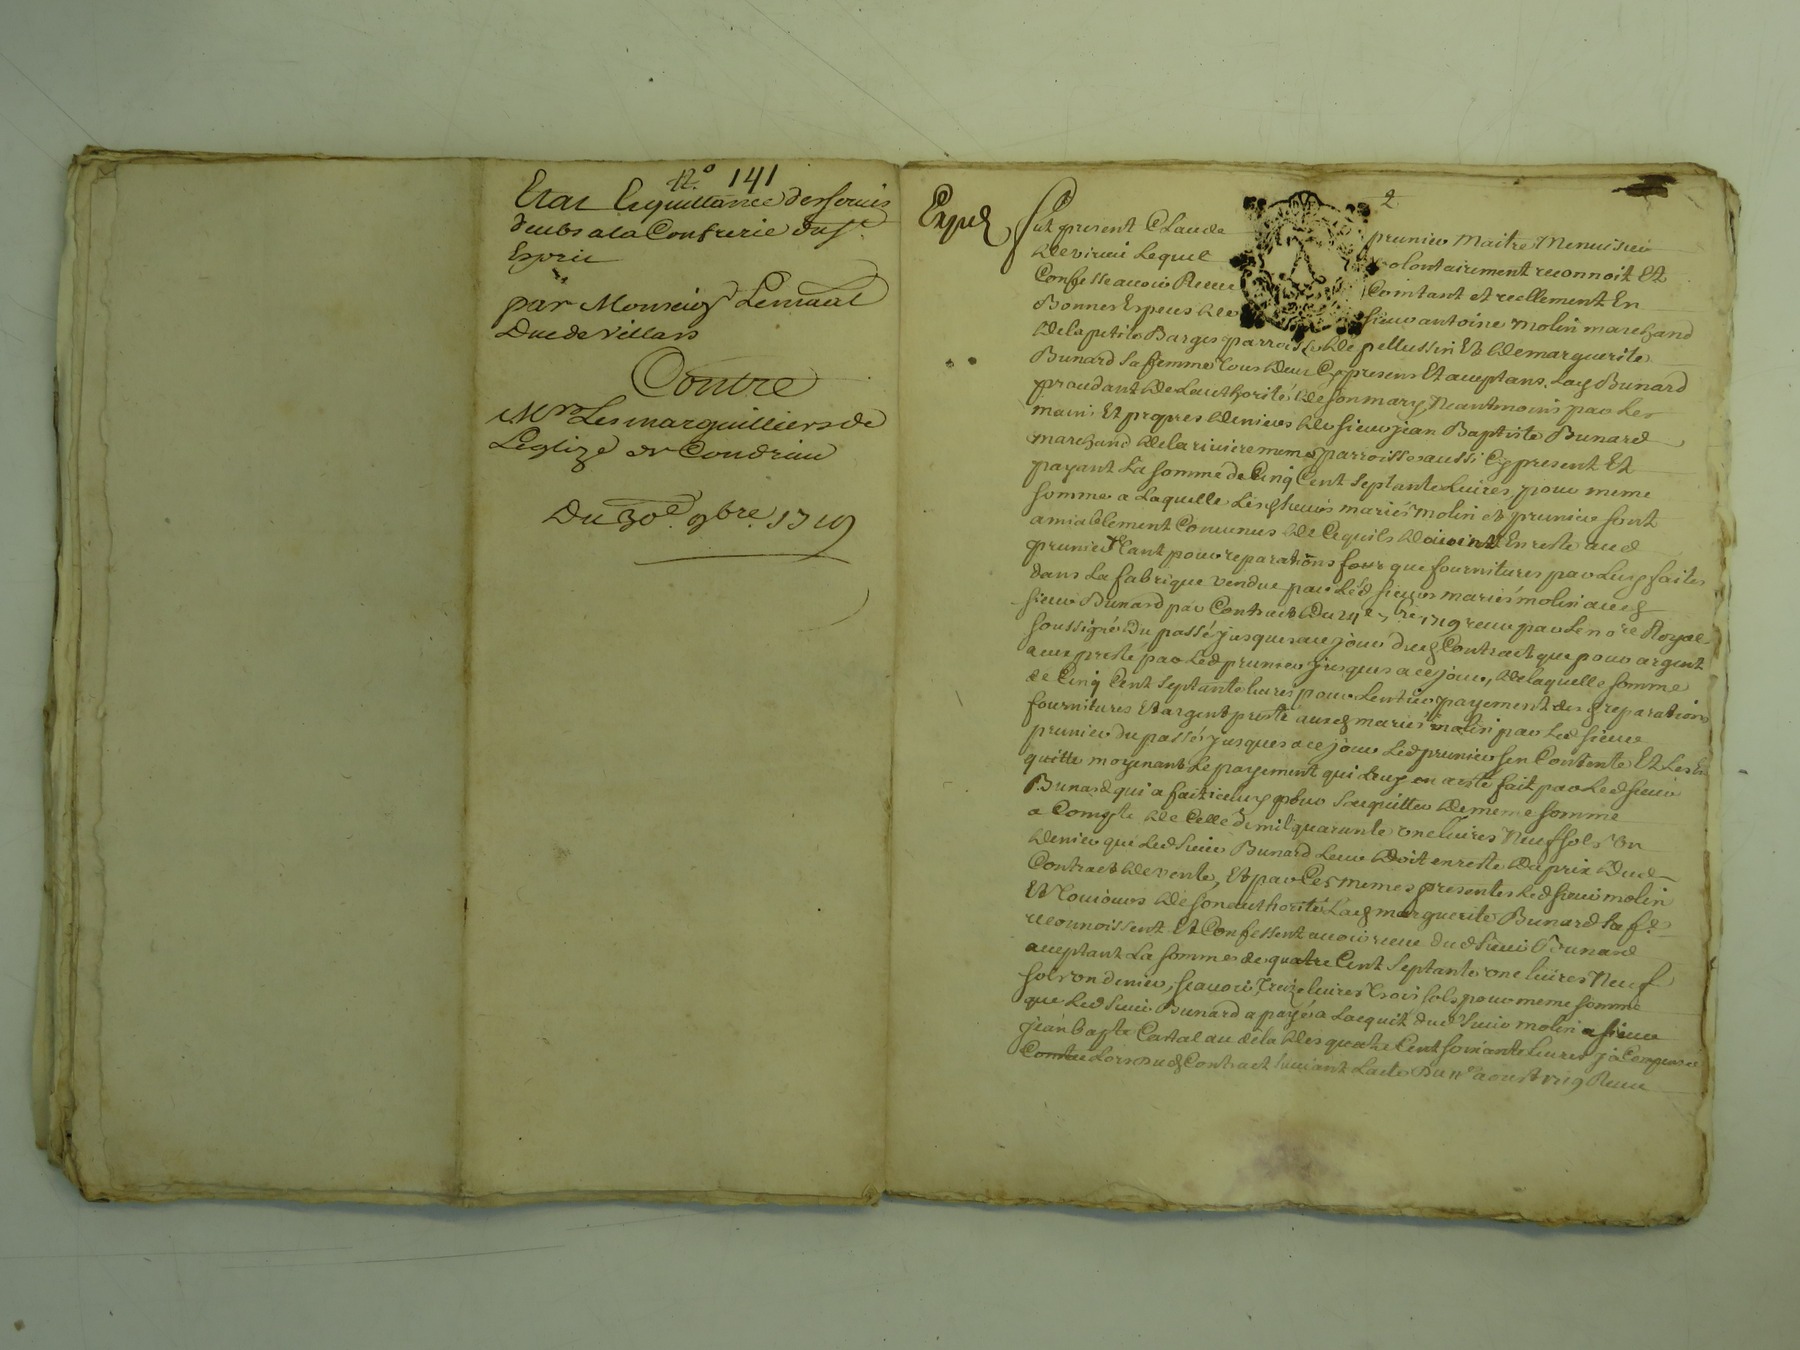 N.º 141
Etat Et quittance des servis
deubs a la Confrerie du St
Esprit
par Monseigr Lemaal
Duc de Villars
Contre
Mrs Les marguilliers de
L'eglize de Condrieu
Du 30e 9bre 1719
2
Exped
fut present Claude prunier Maitre Menuisier
de virieu Lequel volontairement reconnoit Et
Confesse avoir Receu Comtant et reellement En
Bonnes Especes de sieur antoine molin marchand
de la petite Barges parroisse de pellussin Et de marguerite
Bunard sa femme tous deux Cy presens Et aceptans, Lad Bunard
procedant de Lauthorité de son mary, Neantmoins par les
mains Et propres deniers de sieur jean Baptiste Bunard
marchand de la riviere meme parroisse aussi Cy present Et
payant La somme de Cinq Cent Septante Livres, pour meme
somme a Laquelle Lesd sieurs mariés molin et prunier sont
amiablement Convenus de Cequils doivent En reste aud
prunier tant pour reparations que fournitures par Luy faites
dans La fabrique vendue par Led sieurs mariés molin aud
sieur Bunard par Contract du 1719 receu par Le nore Royal
soussigné du passé jusques au jour dud Contract que pour argent
a eux presté par Led prunier jusques a ce jour, de laquelle somme
de Cinq Cent Septante livres pour Lentier payement desd reparations
fournitures Et argent presté auxd mariés molin par Led sieur
prunier du passé jusques a ce jour Led prunier sen Contente Et Les En
quitte moyenant Le payement qui Luy en a esté fait par Led sieur
Bunard qui a fait iceluy pour Sacquitter de meme somme
a Compte de Celle de mil quarante one livres Neuf sols Un
denier que Led Sieur Bunard Leur Doit en reste du prix dud
Contract de vente, Et par Ces memes presentes Led sieur molin
Et toujours de son authorité Lad marguerite Bunard sa fe
reconnoissent Et Confessent avoir receu dud sieur Bunard
aceptant La somme de quatre Cent Septante one livres Neuf
sols un denier, scavoir, Treize livres trois sols pour meme somme
que Led Sieur Bunard a payé a Lacquit dud Sieur molin a sieur
jean Bapte Cartal au dela des quatre Cent soixante livres
Lors dud Contract suivant Lacte du 11e aoust 1719 Receu